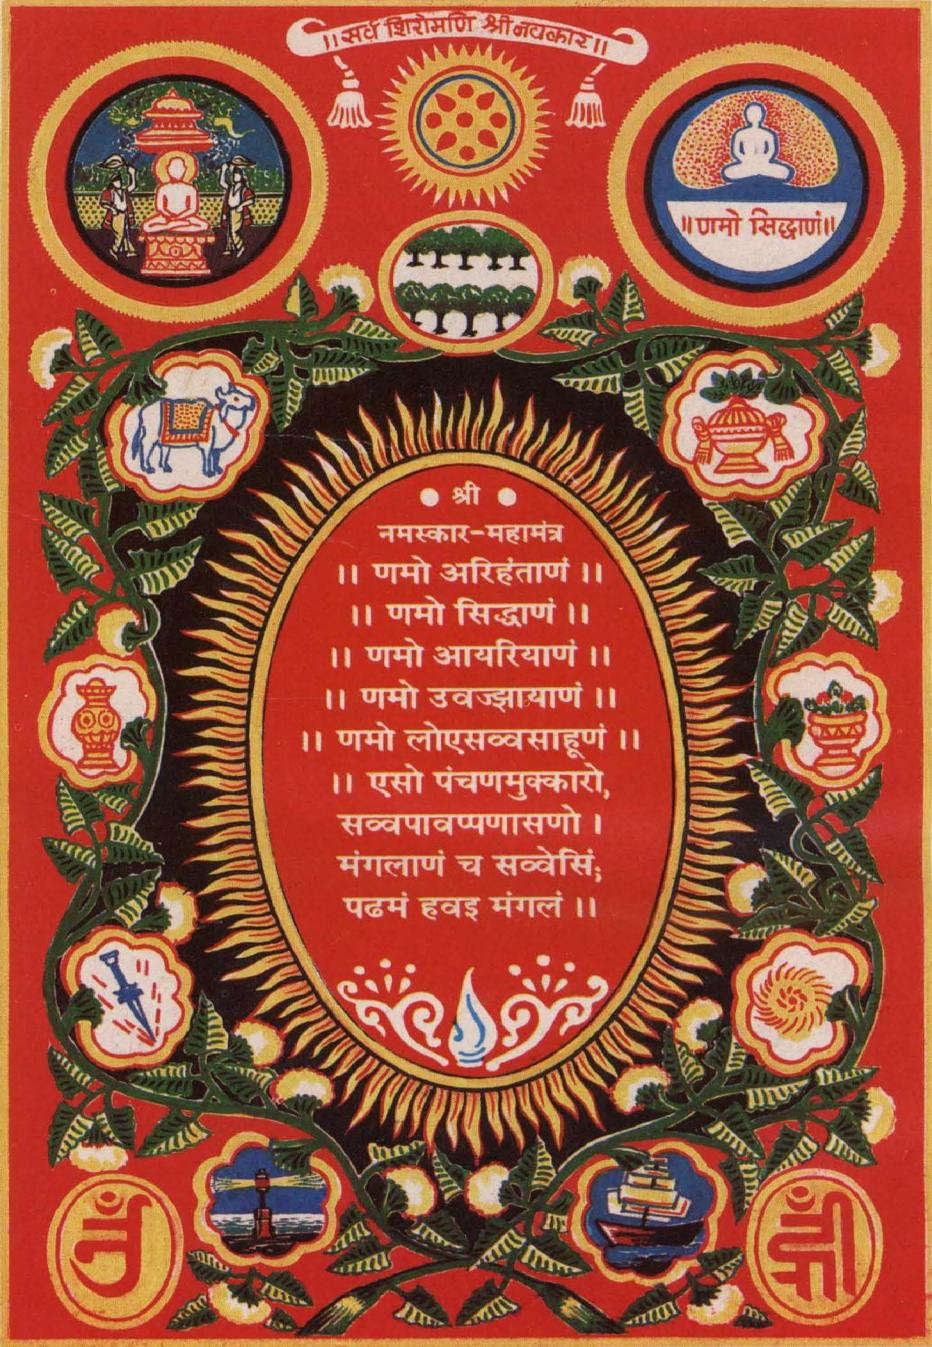 ॥ सर्व शिरोमणि श्री नवकार ॥
॥ णमो सिद्धाणं ॥
● श्री ●
नमस्कार-महामंत्र
॥ णमो अरिहंताणं ॥
॥ णमो सिद्धाणं ॥
॥ णमो आयरियाणं ॥
॥ णमो उवज्झायाणं ॥
॥ णमो लोएसव्वसाहूणं ॥
॥ एसो पंचणमुक्कारो,
सव्वपावप्पणासणो ।
मंगलाणं च सव्वेसिं;
पढमं हवइ मंगलं ॥